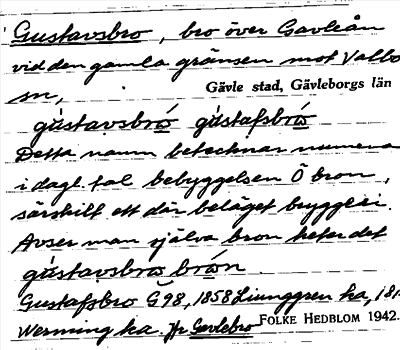 Gustavsbro, bro över Gavleån
vid den gamla gränsen mot Valbo
sn,
Gävle stad, Gävleborgs län
gùstavsbrò gùstafsbrò
Detta namn betecknar numera
i dagl. tal bebyggelsen Ö bron,
särskilt ett där beläget bryggeri.
Avser man själva bron heter det
gùstavsbro bròn.
Gustafsbro G98, 1858 Ljunggren ka, 181
Werming ka. Jfr Gavlebro
FOLKE HEDBLOM 1942.